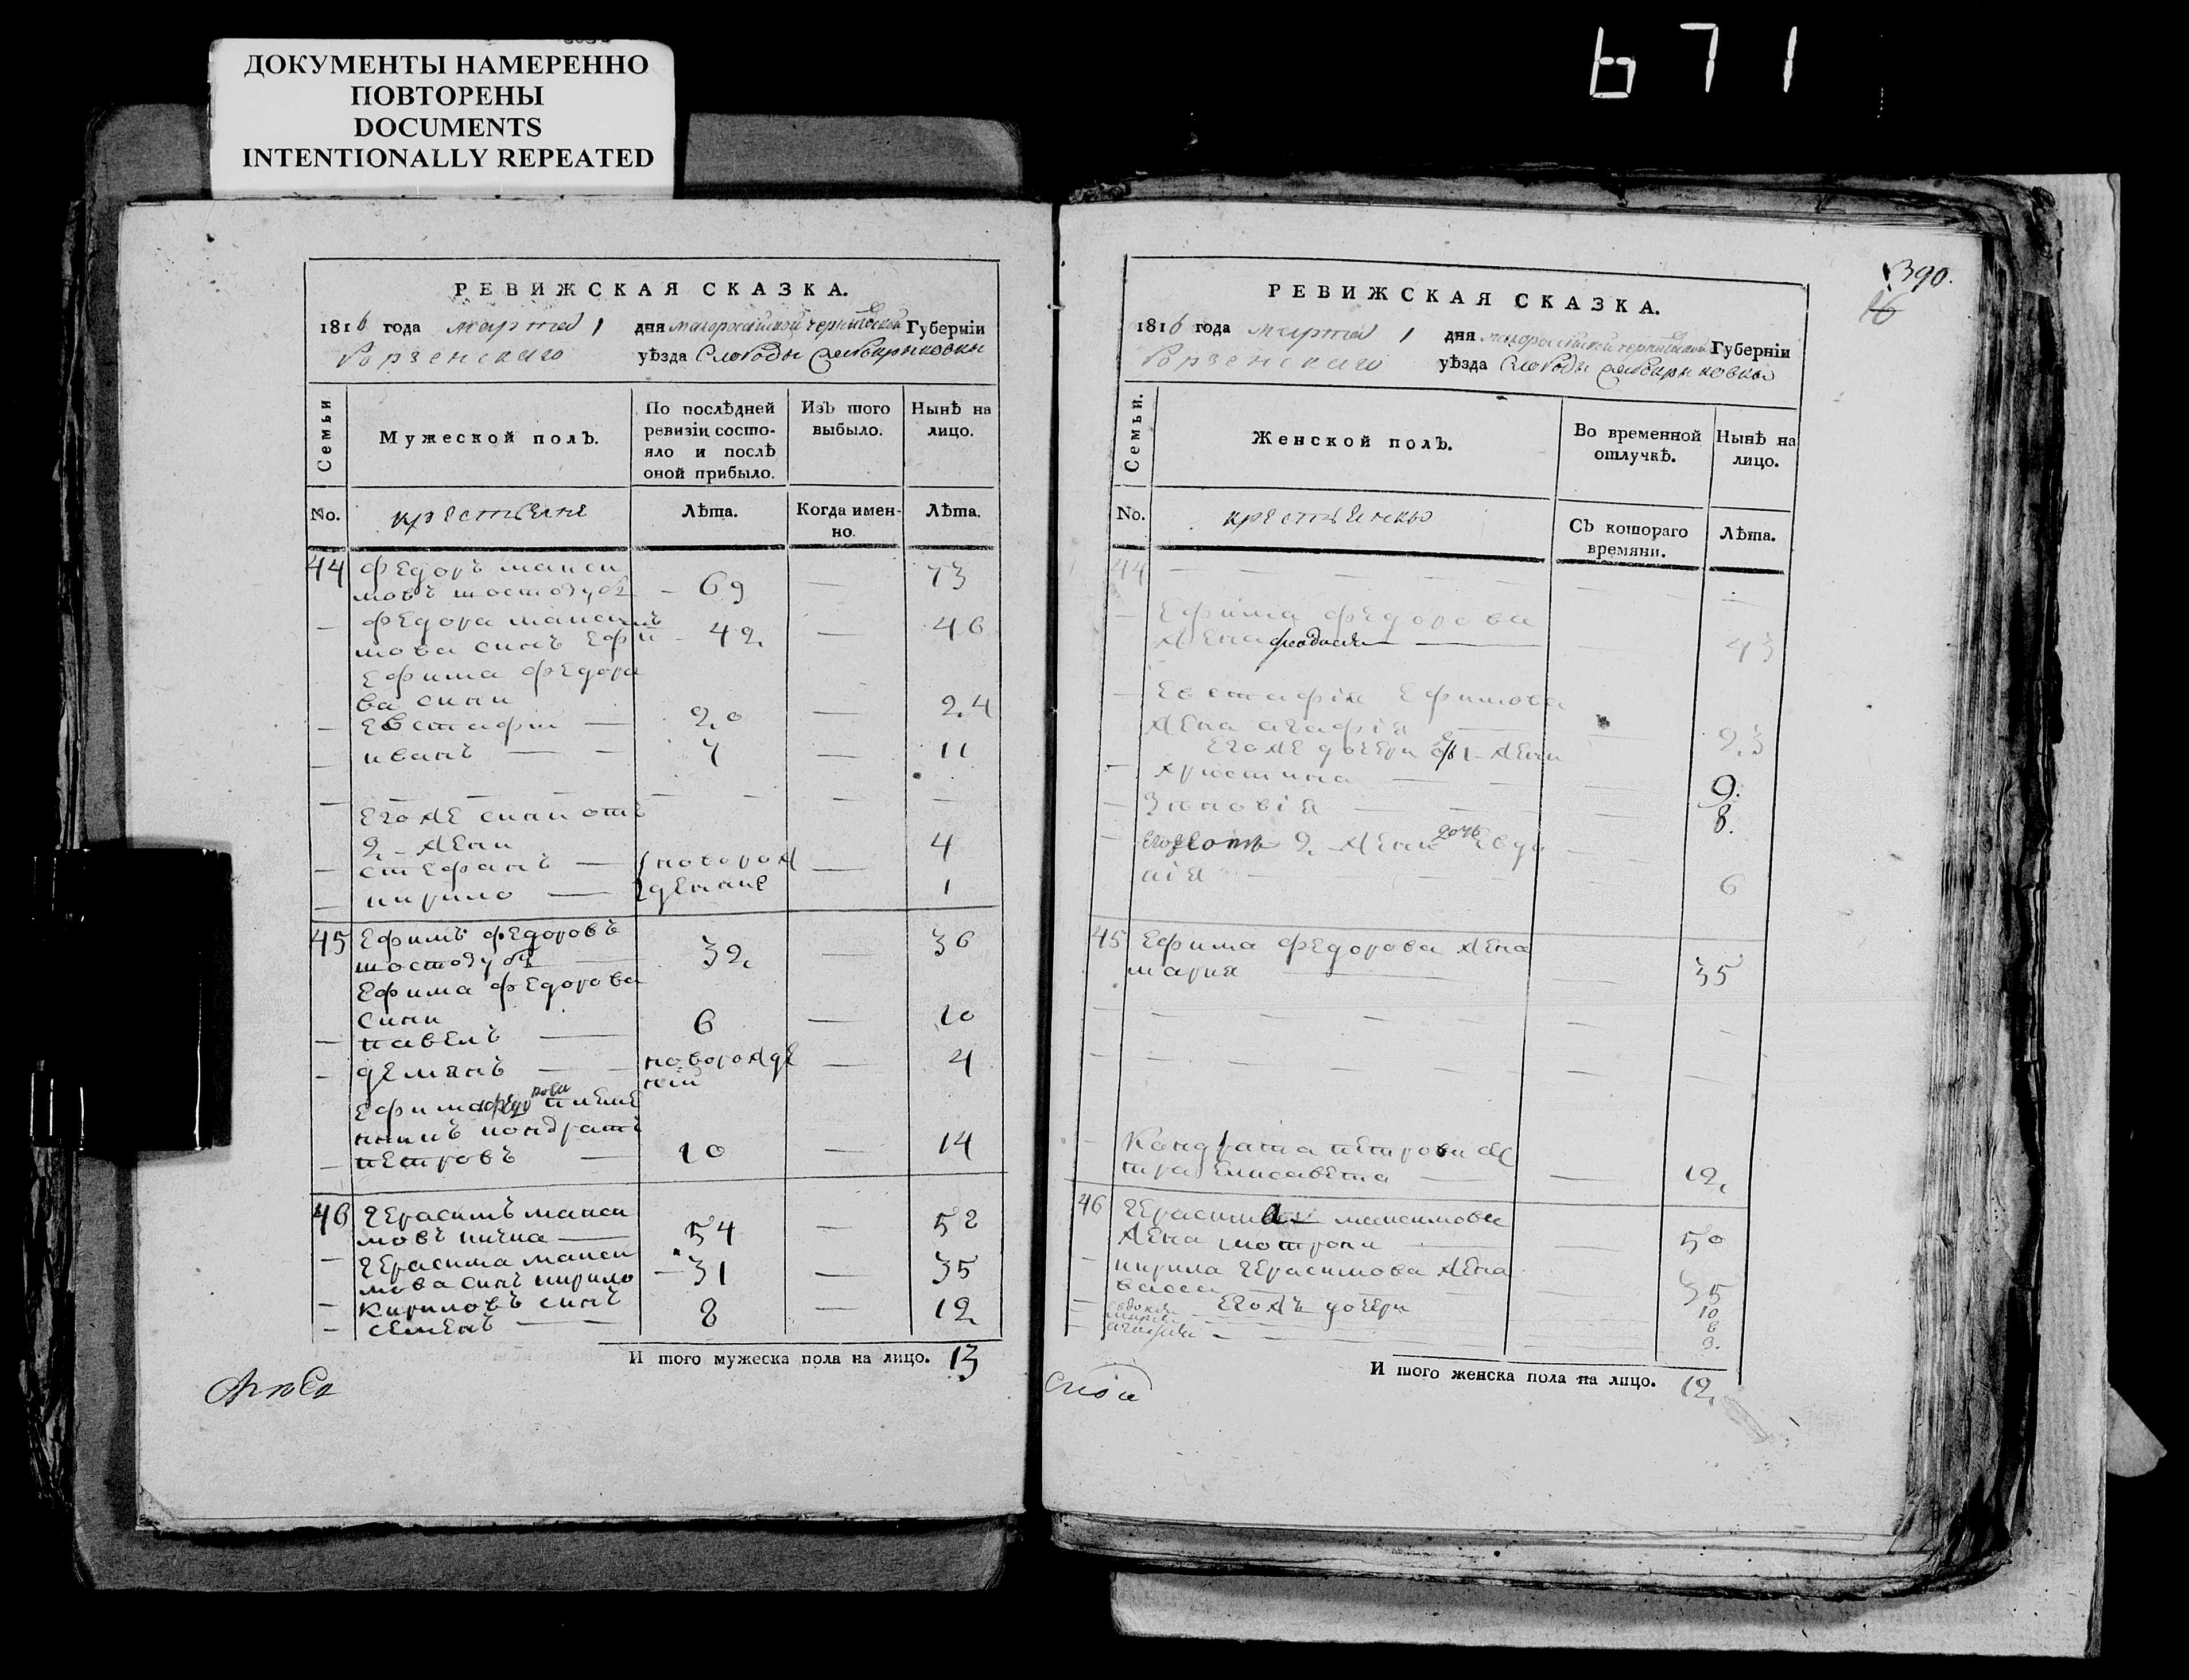 ДОКУМЕНТЫ НАМЕРЕННО
ПОВТОРЕНЫ
DOCUMENTS
INTENTIONALLY REPEATED
671
РЕВИЖСКАЯ СКАЗКА.
1816 года марта 1 дня малоросійской черниговской Губерніи
борзенскаго уѣзда Слободы
Семьи
Мужеской полъ.
По послѣдней ревизіи состояло и послѣ оной прибыло.
Изъ того выбыло.
Нынѣ на лицо.
No. крестьяне Лѣта. Когда именно. Лѣта.
44 федоръ макси
мовъ шостодубъ — 69 — 73
— федора макси
мова синъ Ефимъ — 42 — 46
Ефима федоро
ва сини
— Евстафій — 20 — 24
— иванъ — — 7 — 11
— — — — — — — —
Его же сини отъ
2 - жени
— стефанъ — новорож — 4
— кирило — денние 1
45 Ефимъ федоровъ
шостодубъ — 32 36
Ефима федорова
сини
— павелъ — 6 — 10
— демянъ — — новорожде — 4
ній
Ефима федорова племе
нникъ кондратъ
— петровъ — 10 — 14
46 Герасимъ макси
мовъ — 54 — 58
— Герасима макси
мова синъ кирило — 31 — 35
— Кириловъ синъ
— семенъ — 8 — 12
И того мужеска пола на лицо. 13
РЕВИЖСКАЯ СКАЗКА.
390.
16
1816 года марта 1 дня малоросійской черниговской Губерніи
борзенскаго уѣзда Слободы
Семьи.
Женской полъ.
Во временной отлучкѣ.
Нынѣ на лицо.
No. крестьянки Съ котораго времяни. Лѣта.
44 — — — — — — —
— Ефима федорова
жена феодосия — — 43
— Евстафія Ефимова
жена агафія — — 23
Его же дочери от 1 - жени
— христина — — 9.
— Зиновія — — 8.
— Его же отъ 2 - жени дочь Евдо
кія — — 6
45 Ефима федорова жена
мария — — 35
— — — — — — —
— — — — — — —
— Кондрата петрова сес
тра Елисавета — — 12
46 Герасима максимова
жена мотрона — — 50
— кирила Герасимова жена
васса — — 35
— Его жъ дочери
— евдокия — — 10
— мария — — 8
— агафия — — 3.
И того женска пола на лицо. 12